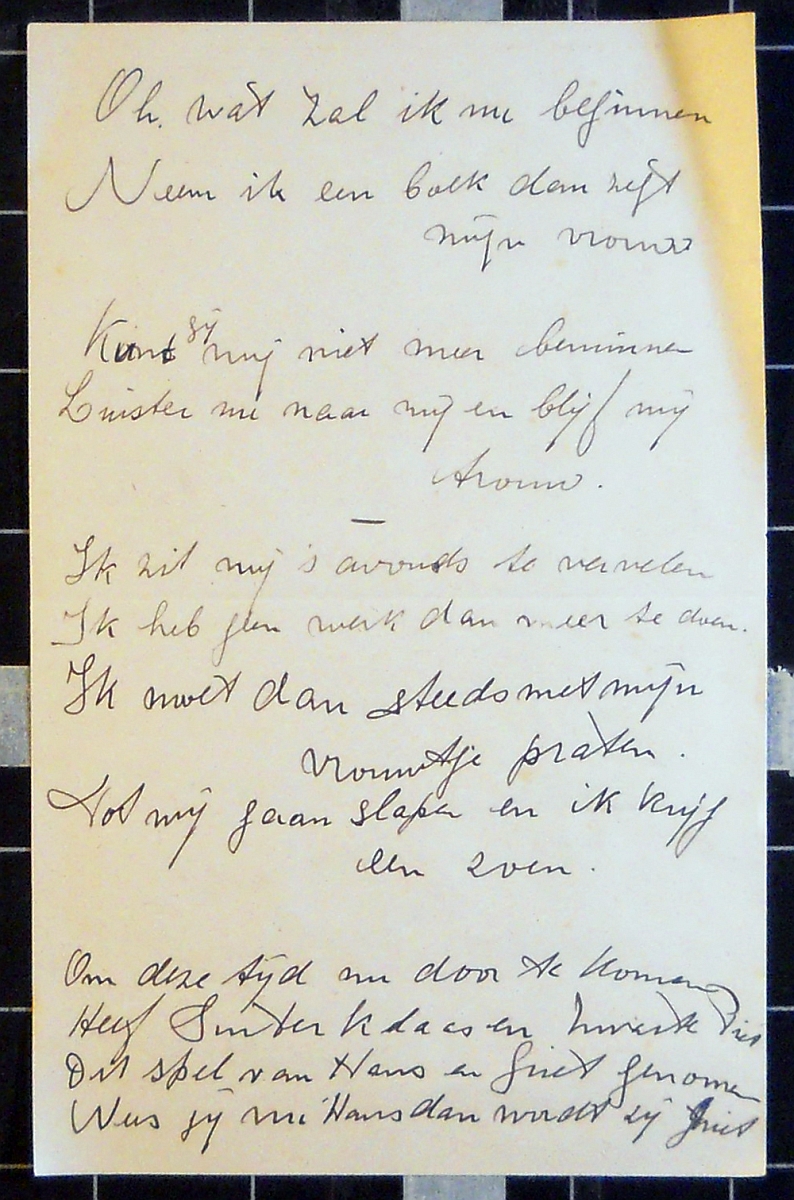 Oh, wat zal ik nu beginnen
Neem ik een boek dan zegt
mijn vrouw
Kunt gij mij niet meer beminnen
Luister nu naar mij en blijf mij
trouw.
—
Ik zit mij 's avonds te vervelen
Ik heb geen werk dan meer te doen.
Ik moet dan steeds met mijn
vrouwtje praten.
Tot wij gaan slapen en ik krijg
een zoen.
Om deze tijd nu door te komen
Heef Sinterklaas en Zwarte Piet
Dit spel van Hans en Griet genomen
Wees gij nu Hans dan wordt zij Griet